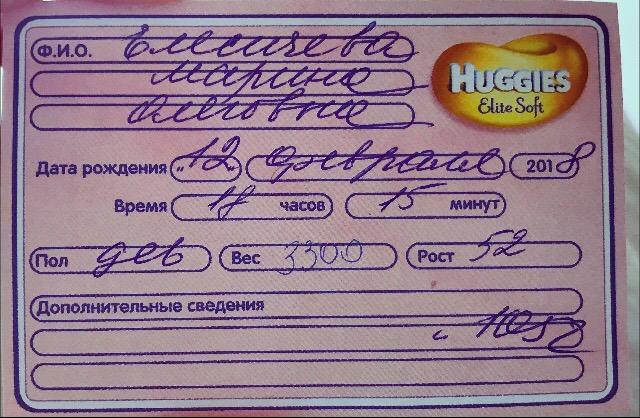 Ф.И.О. Елисичева
Марина
Олеговна
HUGGIES
Elite Soft
Дата рождения „12„ февраля 2018
Время 18 часов 15 минут
Пол дев Вес 3300 Рост 52
Дополнительные сведения